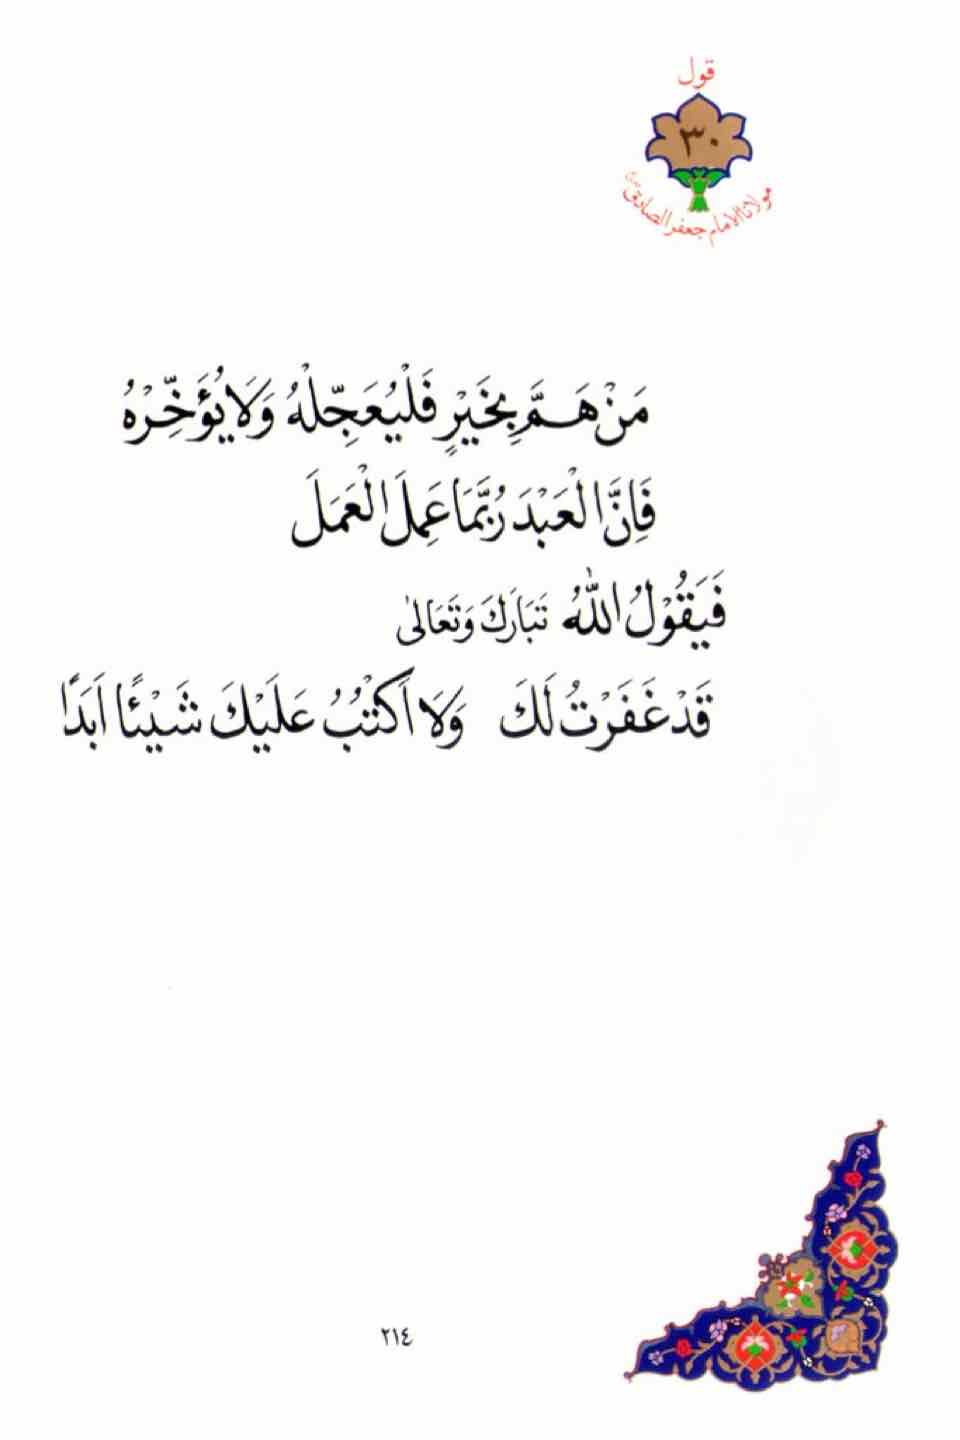 قول
٣٠
مولانا الامام جعفر الصادق
مَنْ هَمَّ بِخَيْرٍ فَلْيُعَجِّلْهُ وَلَا يُؤَخِّرْهُ
فَاِنَّ الْعَبْدَ رُبَّمَا عَمِلَ الْعَمَلَ
فَيَقُوْلُ اللّٰهُ تَبَارَكَ وَتَعَالىٰ
قَدْ غَفَرْتُ لَكَ وَلَا اَكْتُبُ عَلَيْكَ شَيْئًا اَبَدًا
٢١٤